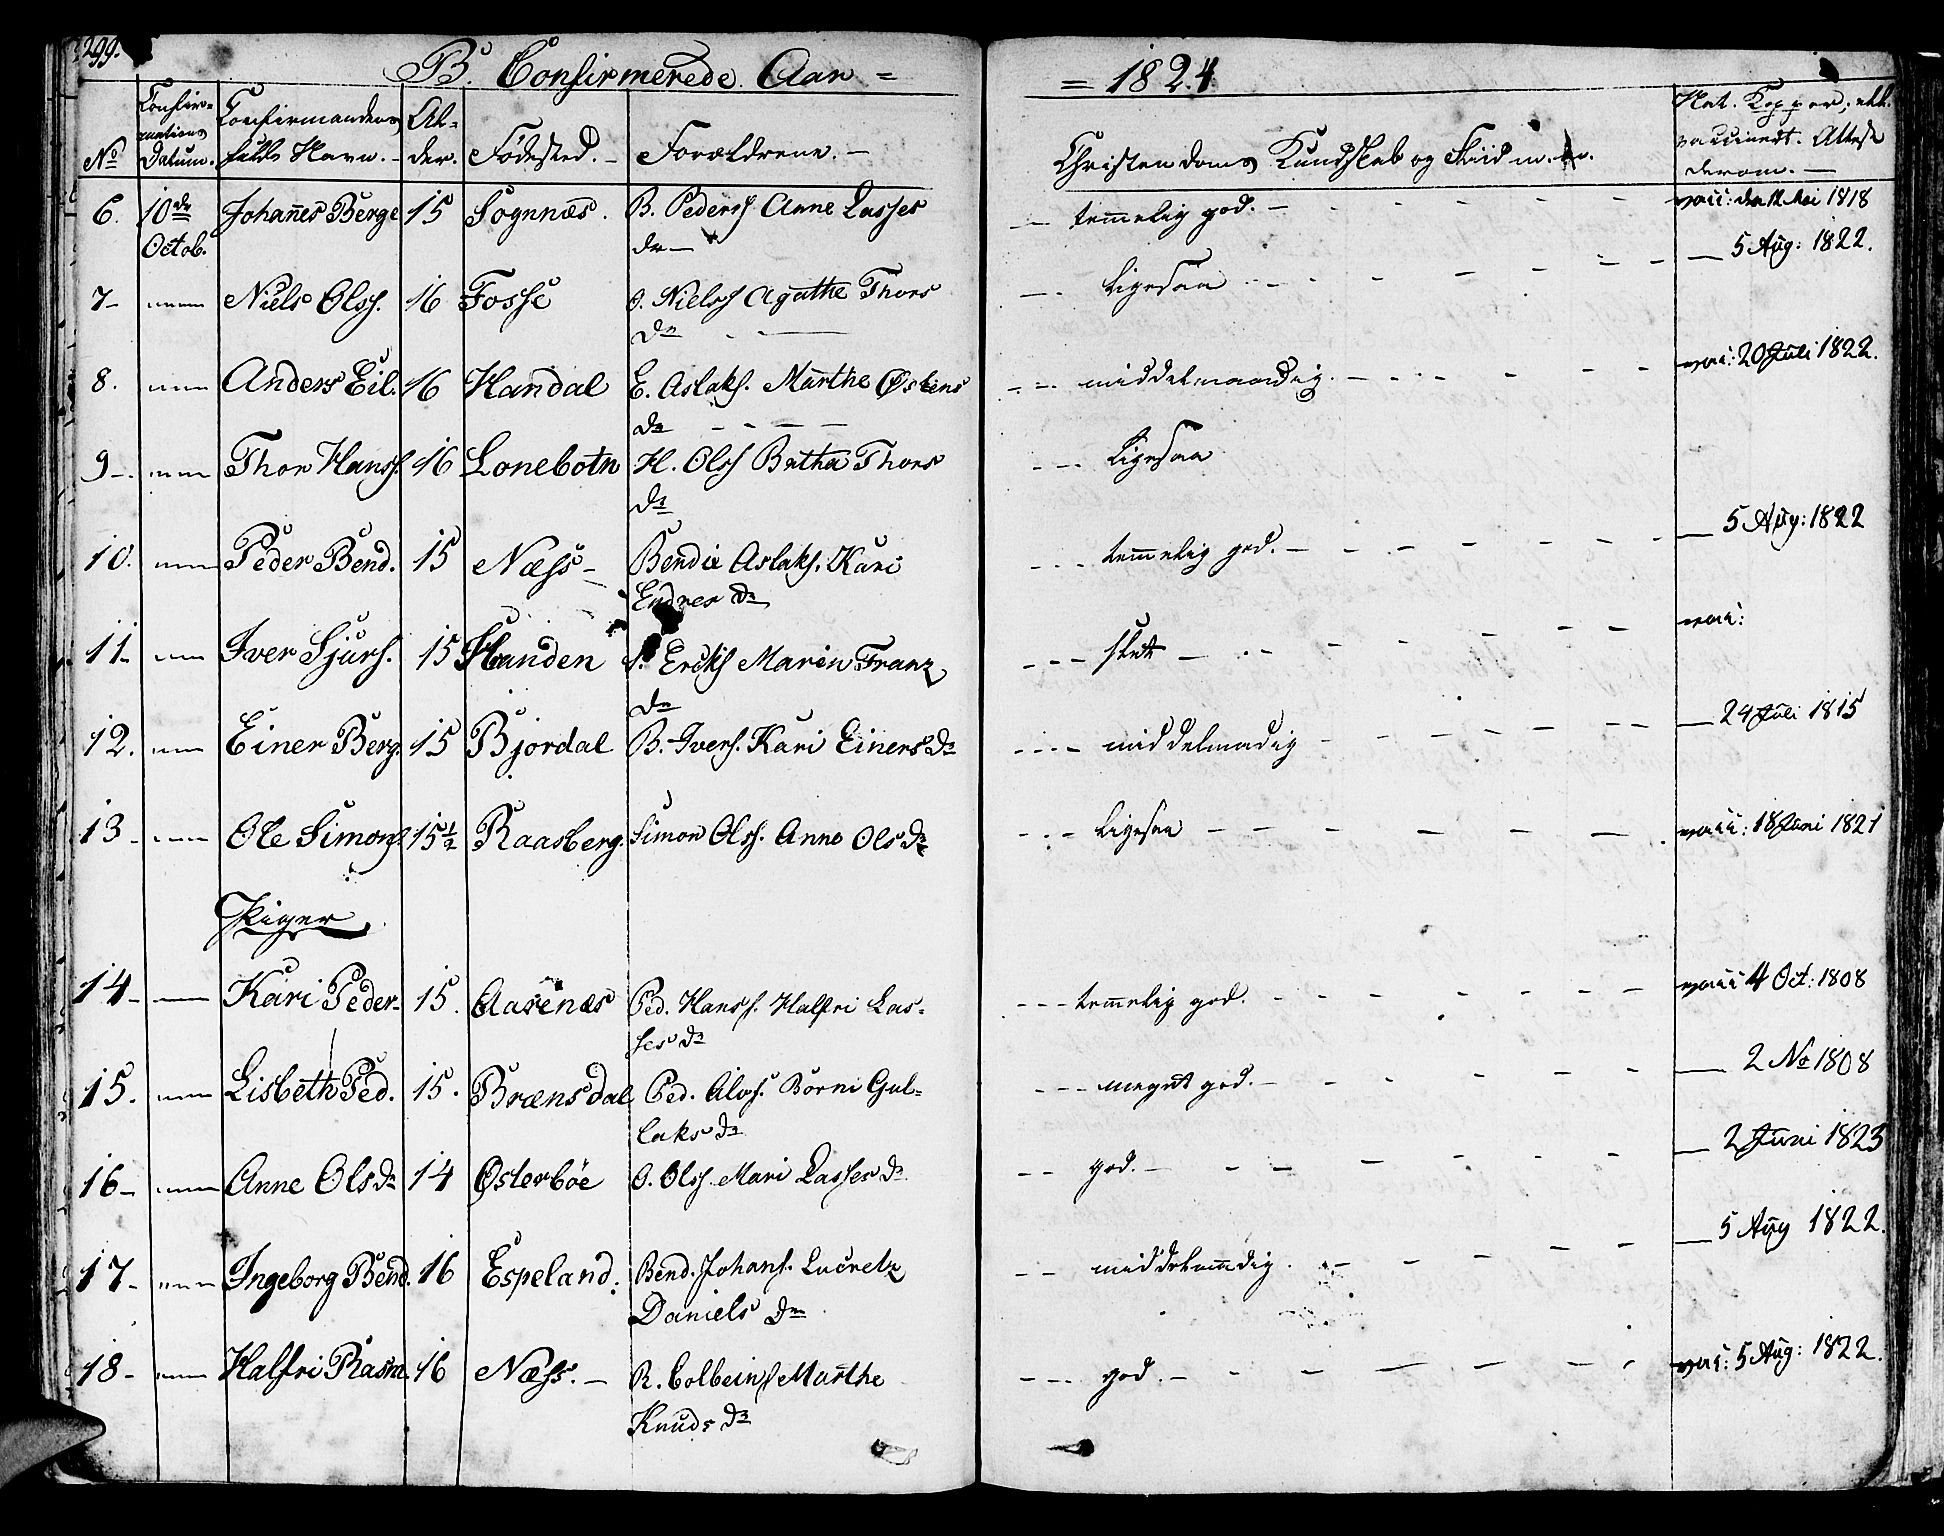 299.
B. Confirmerede Aar = = 1824
No
Confir=
mations
Datum.
Confirmandens
fulde Navn. -
Al-
der.
Fødested. -
Forældrene. -
Christendoms Kundskab og Fliid m.m.
Nat. Kopper, ell.
vaccinert. Attest
derom. -
6. 10de Octob. Johañes Berge 15 Sognnæs. B. Peders. Anne Lasses
dr - temelig god. - vacc: den 12 Mai 1818
7 - Niels Olss. 16 Fosse O. Nielss Agathe Thors
dr - ligesaa - 5 Aug: 1822.
8. Anders Eil. 16 Handal E. Aslaks. Marthe Østens
dr - middelmaadig. - vacc: 20 Juli 1822.
9 - Thor Hanss. 16 Lonebotn H. Olss Bertha Thors
dr - ligesaa
10. Peder Bend. 15 Næss - Bendix Aslaks. Kari
Endres dr - temelig god. - 5 Aug: 1822
11 - Iver Sjurs. 15 Handen S. Eriks Maren Franz
dr - slet - vacc:
12. Einer Berg. 15 Bjordal B. Ivers. Kari Einers dr - middelmadig - 24 Juli 1815
13 - Ole Simons. 15 1/2 Raasberg. Simon Olss. Anne Ols dr - ligesaa - vacc: 18 Juni 1821
Piger
14 - Kari Peder- 15. Aasenæs Ped. Hanss. Halfri Las=
ses dr - temelig god. - vacc 4 Oct: 1808
15. Lisbeth Ped. 15. Brænsdal Ped. Olvs. Børni Gul=
laks dr - meget god. - 2 No 1808
16 - Anne Ols dr 14 Østerbøe O. Olss. Mari Lasses dr - god. - 2 Juni 1823
17 - Ingeborg Bend. 16 Espeland. Bend. Johans. Lucretz
Daniels dr - middelmadig. - 5 Aug 1822.
18 - Halfri Rasm. 16 Næss. - R. Colbeins Marthe
Knuds dr - god. - vacc: 5 Aug: 1822.